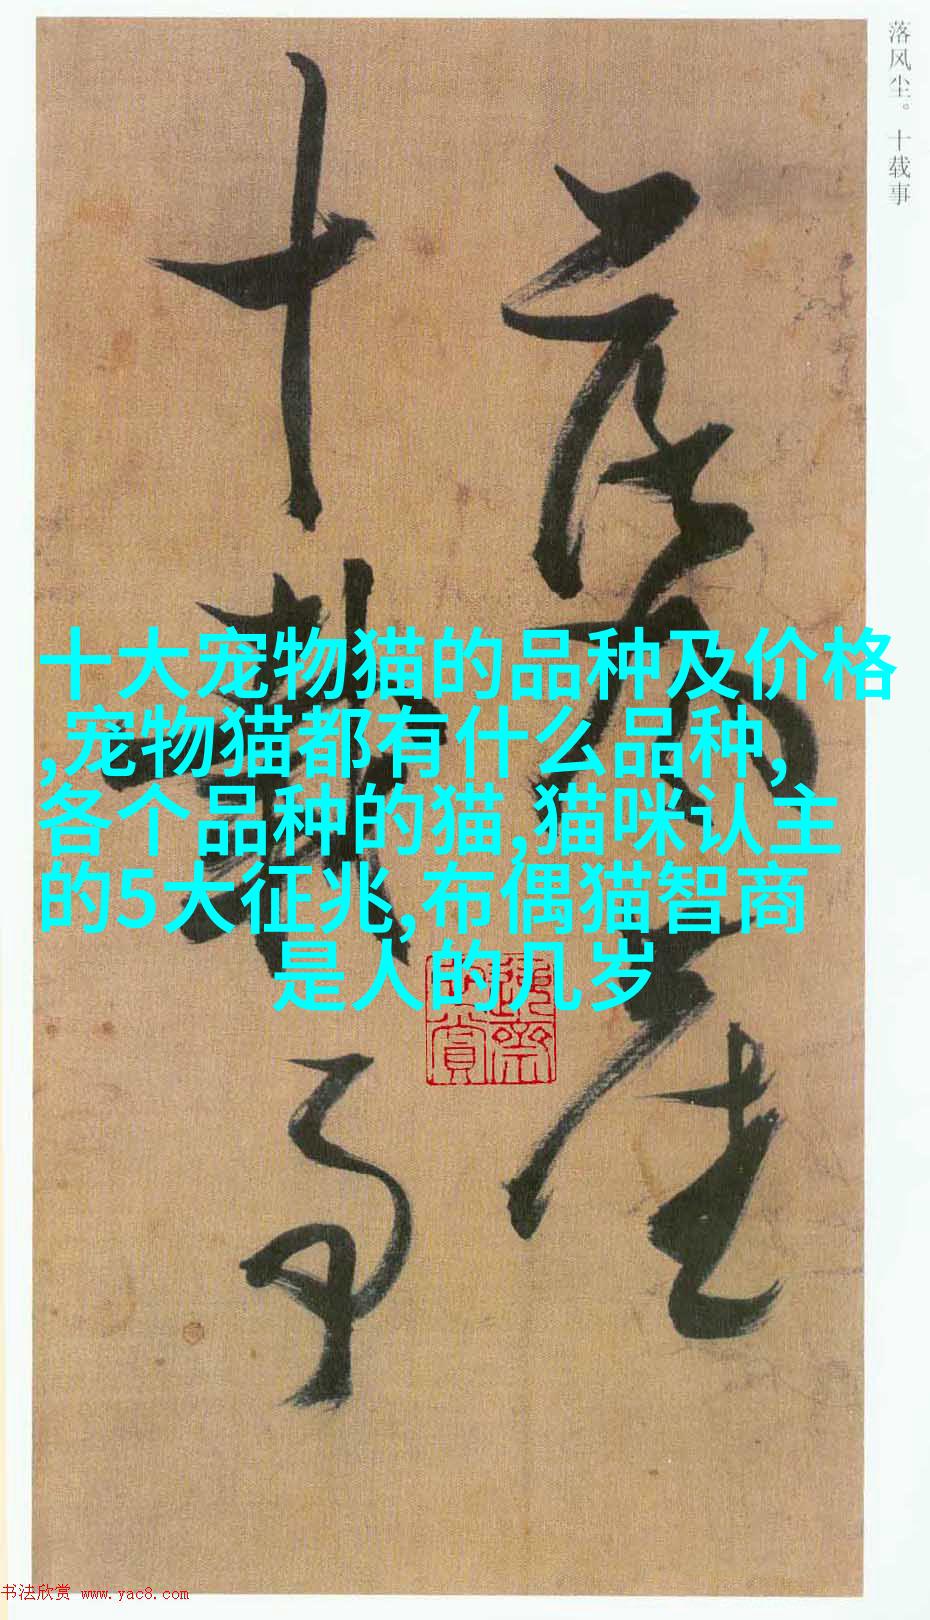 落风尘。十载事
落风尘
十载事
十大宠物猫的品种及价格
,宠物猫都有什么品种,
各个品种的猫,猫咪认主
的5大征兆,布偶猫智商
是人的几岁
书法欣赏 www.yac8.com